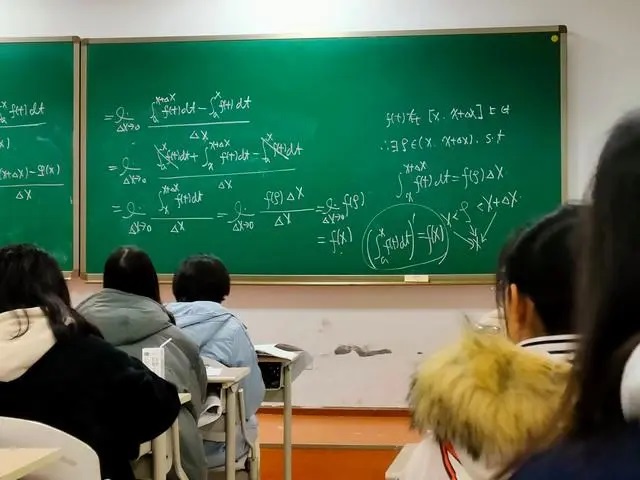 f(t)dt
ΔX
x+Δx) − φ(x)
ΔX
= lim_{ΔX→0} (∫_a^{x+ΔX} f(t)dt − ∫_a^x f(t)dt) / ΔX
= lim_{ΔX→0} (∫_a^x f(t)dt + ∫_x^{x+ΔX} f(t)dt − ∫_a^x f(t)dt) / ΔX
= lim_{ΔX→0} (∫_x^{x+ΔX} f(t)dt) / ΔX = lim_{ΔX→0} f(ξ)ΔX / ΔX = lim_{ΔX→0} f(ξ)
= f(x)
f(t)在 [x. x+ΔX]
∴∃ξ∈(x. x+ΔX). s.t
∫_x^{x+ΔX} f(t)dt = f(ξ)ΔX
x<ξ<x+ΔX
x
(∫_a^x f(t)dt)' = f(x)